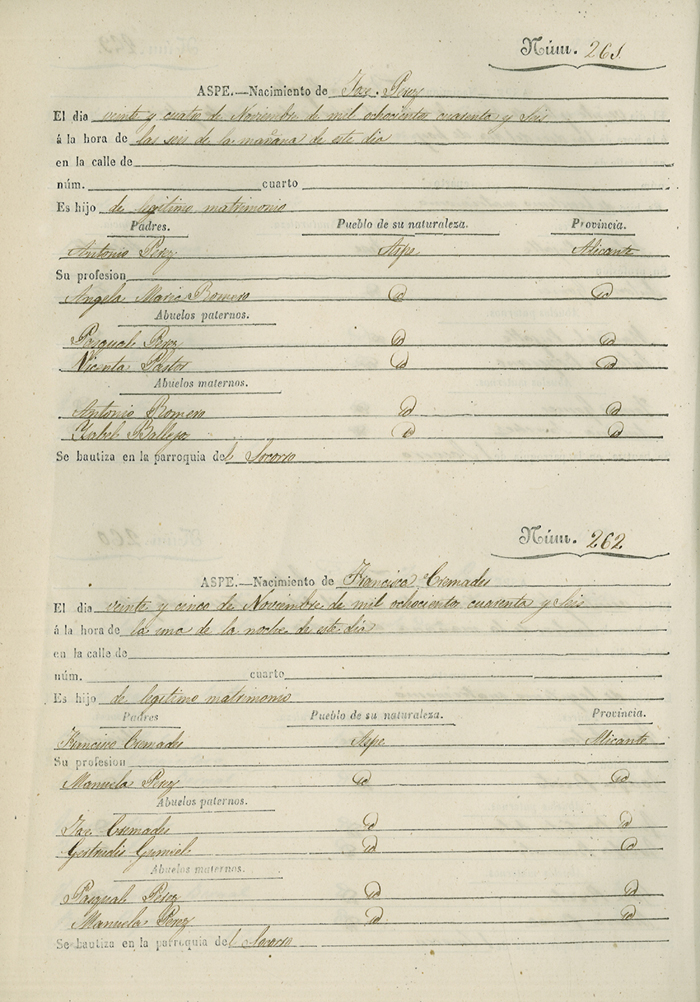 Núm. 261
ASPE.—Nacimiento de Jose Perez
El dia veinte y cuatro de Noviembre de mil ochocientos cuarenta y seis
á la hora de las seis de la mañana de este dia
en la calle de
núm. cuarto
Es hijo de legitimo matrimonio
Padres. Pueblo de su naturaleza. Provincia.
Antonio Perez Aspe Alicante
Su profesion
Angela Maria Romero id id
Abuelos paternos.
Pasqual Perez id id
Vicenta Pastor id id
Abuelos maternos.
Antonio Romero id id
Ysabel Ballejo id id
Se bautiza en la parroquia del Socorro
Núm. 262
ASPE.—Nacimiento de Francisca Cremades
El dia veinte y cinco de Noviembre de mil ochocientos cuarenta y seis
á la hora de la una de la noche de este dia
en la calle de
núm. cuarto
Es hijo de legitimo matrimonio
Padres Pueblo de su naturaleza. Provincia.
Francisco Cremades Aspe Alicante
Su profesion
Manuela Perez id id
Abuelos paternos.
Jose Cremades id id
Gertrudis id id
Abuelos maternos.
Pasqual Perez id id
Manuela Perez id id
Se bautiza en la parroquia del Socorro